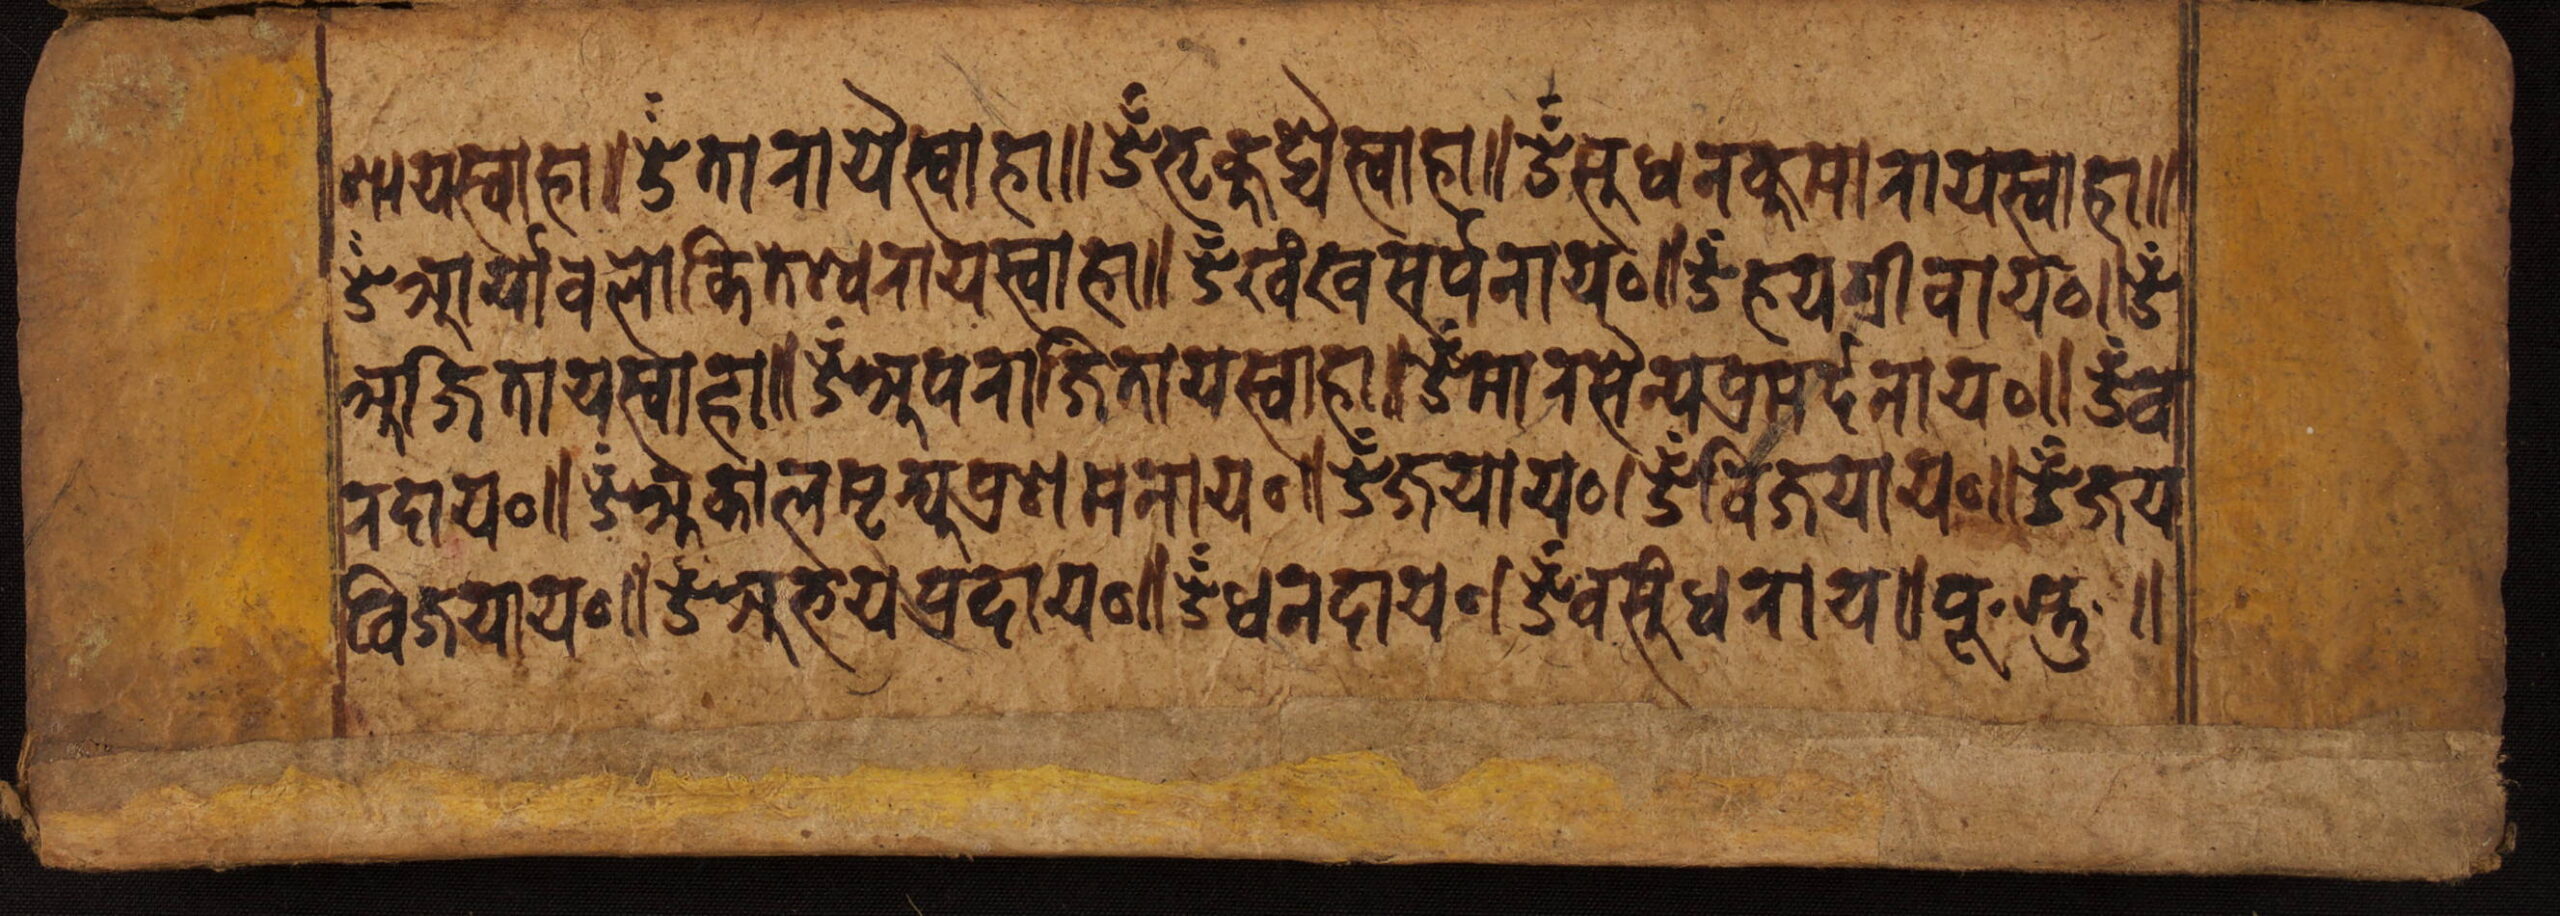 णाय स्वाहा ॥ ॐ तारायै स्वाहा ॥ ॐ भृकुट्यै स्वाहा ॥ ॐ सुधनकुमाराय स्वाहा ॥
ॐ आर्यावलोकितेश्वराय स्वाहा ॥ ॐ खंखसर्पनाय० ॥ ॐ हयग्रीवाय० ॥ ॐ
अजिताय स्वाहा ॥ ॐ अपराजिताय स्वाहा ॥ ॐ मारसैन्यप्रमर्दनाय० ॥ ॐ व
रदाय० ॥ ॐ अकालमृत्युप्रशमनाय० ॥ ॐ जयाय० । ॐ विजयाय० ॥ ॐ जय
विजयाय० ॥ ॐ अभयप्रदाय० ॥ ॐ धनदाय० । ॐ वसुंधराय ॥ पू॰ स्तु॰ ॥